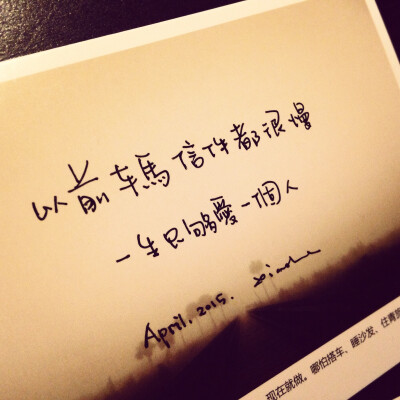 以前車馬信件都很慢
一生只夠愛一個人
April. 2015.
现在就做。哪怕搭车、睡沙发、住青旅